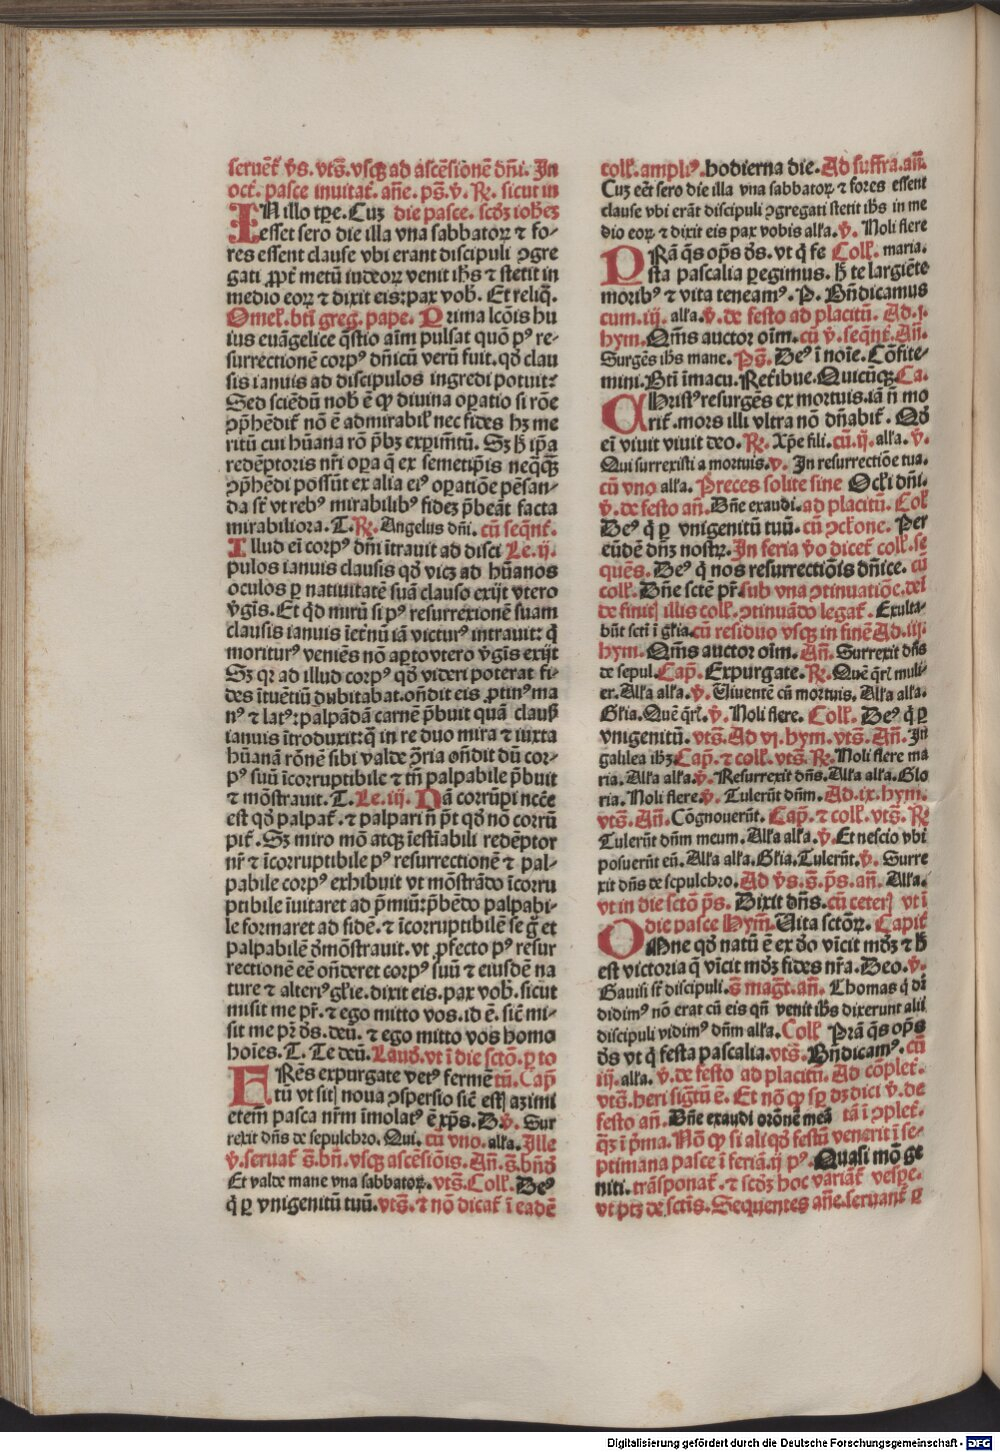 seruēt̄ v̄s. vts̄. vsq̄ ad ascēsionē dn̄i. In
oct̄. pasce inuitat̄. an̄e. ps̄. v̄. R̄. sicut in
IN illo tp̄e. Cuꝫ die pasce. scd̄ꝫ ioh̄eꝫ
esset sero die illa vna sabbatoꝝ ⁊ fo-
res essent clause vbi erant discipuli ꝯgre
gati ꝓpt̄ metū iudeoꝝ venit ih̄s ⁊ stetit in
medio eoꝝ ⁊ dixit eis: pax vob̄. Et reliq̄.
Omel̄. bt̄i greg. pape. Prima lcōis hu
ius euāgelice q̄stio aīm pulsat quō pꝰ re-
surrectionē corpꝰ dn̄icū verū fuit. qd̄ clau
sis ianuis ad discipulos ingredi potuit:
Sed sciēdū nob̄ ē ꝙ diuina oꝑatio si rōe
ꝯp̄hēdit̄ nō ē admirabil̄ nec fides hꝫ me
ritū cui hūana rō p̄bꝫ exꝑim̄tū. Sꝫ h̄ ip̄a
redēptoris nr̄i oꝑa q̄ ex semetip̄is neq̄q̄
ꝯp̄hēdi possūt ex alia eiꝰ oꝑatiōe pēsan-
da st̄ vt rebꝰ mirabilibꝰ fideꝫ p̄beāt facta
mirabiliora. T. R̄. Angelus dn̄i. cū seqn̄t̄.
Illud ei corpꝰ dn̄i ītrauit ad disci Le. ij.
pulos ianuis clausis qd̄ vicꝫ ad hūanos
oculos ꝑ natiuitatē suā clauso exijt vtero
v̄gīs. Et qd̄ mirū si pꝰ resurrexionē suam
clausis ianuis īet̄nū iā victurꝰ intrauit: q̄
moriturꝰ veniēs nō aꝑto vtero v̄gīs exijt
Sꝫ qꝛ ad illud corpꝰ qd̄ videri poterat fi-
des ītuētiū dubitabat. on̄dit eis ꝓtinꝰ ma
nꝰ ⁊ latꝰ: palpādā carnē p̄buit quā clausꝭ
ianuis ītroduxit: q̄ in re duo mira ⁊ iuxta
hūanā rōnē sibi valde ꝯ̄ria on̄dit dū cor-
pꝰ suū īcorruptibile ⁊ tn̄ palpabile p̄buit
⁊ mōstrauit. T. Le. iij. Nā corrūpi nccē
est qd̄ palpat̄. ⁊ palpari n̄ p̄t qd̄ nō corrū
pit̄. Sꝫ miro mō atqꝫ īestīabili redēptor
nr̄ ⁊ īcorruptibile pꝰ resurrectionē ⁊ pal-
pabile corpꝰ exhibuit vt mōstrādo īcorru
ptibile īuitaret ad p̄miū: p̄bēdo palpabi-
le formaret ad fidē. ⁊ īcorruptibilē se ḡ et
palpabilē dmōstrauit. vt ꝓfecto pꝰ resur
rectionē eē on̄deret corpꝰ suū ⁊ eiusdē na
ture ⁊ alteriꝰ gl̄ie. dixit eis. pax vob̄. sicut
misit me pr̄. ⁊ ego mitto vos. id ē. sic̄ mi-
sit me pr̄ ds̄. deū. ⁊ ego mitto vos homo
hoīes. T. Te deū. Laud̄. vt ī die sctō. ꝑ to
FRēs expurgate vetꝰ fermē tū. Cap̄
tū vt sitꝭ noua ꝯspersio sic̄ estꝭ azimi
etem̄ pasca nr̄m īmolatꝰ ē xp̄s. D. v̄. Sur
rexit dn̄s de sepulchro. Qui. cū vno. alla. Ille
v̄. seruat̄ s̄. bn̄. vsqꝫ ascēsiōis. An̄. s̄. bn̄d
Et valde mane vna sabbatoꝝ. vts̄. Coll̄. Deꝰ
q̄ ꝑ vnigenitū tuū. vts̄. ⁊ nō dicat̄ ī eadē
coll̄. ampliꝰ. hodierna die. Ad suffra. an̄.
Cuꝫ eēt sero die illa vna sabbatoꝝ ⁊ fores essent
clause vbi erāt discipuli ꝯgregati stetit ih̄s in me
dio eoꝝ ⁊ dixit eis pax vobis alla. v̄. Noli flere
PRā q̄s op̄s ds̄. vt q̄ fe Coll̄. maria.
sta pascalia ꝑegimus. h̄ te largiēte
moribꝰ ⁊ vita teneamꝰ. P. Bn̄dicamus
cum. iij. alla. v̄. de festo ad placitū. Ad. j.
hym. Oīms auctor oīm. cū v̄. seqn̄t̄. An̄.
Surgēs ih̄s mane. Ps̄. Deꝰ ī noīe. Cōfite-
mini. Bt̄i īmacu. Ret̄ibue. Quicūqꝫ. Ca.
CHristꝰ resurgēs ex mortuis. iā n̄ mo
rit̄. mors illi vltra nō dn̄abit̄. Qd̄
eī viuit viuit deo. R̄. Xp̄e fili. cū. ij. alla. v̄.
Qui surrexisti a mortuis. v̄. In resurrectiōe tua.
cū vno alla. Preces solite sine Ocl̄i dn̄i.
v̄. de festo an̄. Dn̄e exaudi. ad placitū. Coll̄
Deꝰ q̄ ꝑ vnigenitū tuū. cū ꝯcl̄one. Per
eūdē dn̄ꝫ nostꝝ. In feria v̄o dicet̄ coll̄. se
quēs. Deꝰ q̄ nos resurrectiōis dn̄ice. cū
coll̄. Dn̄e sctē pr̄. sub vna ꝯtinuatiōe. del
de finitꝭ illis coll̄. ꝯtinuādo legat̄. Exulta-
būt sct̄i ī gl̄ia. cū residuo vsqꝫ in finē Ad. iij.
hym. Oīms auctor oīm. An̄. Surrexit dn̄s
de sepul. Cap̄. Expurgate. R̄. Quē qr̄l muli-
er. Alla alla. v̄. Viuentē cū mortuis. Alla alla.
Gl̄ia. Quē qr̄l. v̄. Noli flere. Coll̄. Deꝰ q̄ ꝑ
vnigenitū. vts̄. Ad vj. hym. vts̄. An̄. In
galilea ih̄ꝫ. Cap̄. ⁊ coll̄. vts̄. R̄. Noli flere ma
ria. Alla alla. v̄. Resurrexit dn̄s. Alla alla. Glo
ria. Noli flere. v̄. Tulerūt dn̄m. Ad. ix. hym.
vts̄. An̄. Cōgnouerūt. Cap̄. ⁊ coll̄. vts̄. R̄
Tulerūt dn̄m meum. Alla alla. v̄. Et nescio vbi
posuerūt eū. Alla alla. Gl̄ia. Tulerūt. v̄. Surre
xit dn̄s de sepulchro. Ad v̄s. s̄. ps̄. an̄. Alla.
vt in die sctō ps̄. Dixit dn̄s. cū ceterꝭ vt ī
die pasce Hym̄. Vita sctōꝝ. Capit̄
OMne qd̄ natū ē ex dō vīcit mūdꝫ ⁊ h̄
est victoria q̄ vīcit mūdꝫ fides nr̄a. Deo. v̄.
Gauisi st̄ discipuli. s̄ magt̄. an̄. Thomas q̄ dr̄
didimꝰ nō erat cū eis qn̄ venit ih̄s dixerunt alii
discipuli vidimꝰ dn̄m alla. Coll̄ Prā q̄s op̄s
ds̄ vt q̄ festa pascalia. vts̄. Bn̄dicamꝰ. cū
iij. alla. v̄. de festo ad placitū. Ad cōplet̄.
vts̄. heri sigtū ē. Et nō ꝙ sꝑ dꝫ dici v̄. de
festo an̄. Dn̄e exaudi orōnē meā tā ī ꝯplet̄.
q̄ꝫ ī p̄ma. Nō ꝙ si aliqd̄ festū venerit ī se-
ptimana pasce ī feriā. ij pꝰ. Quasi mō ge
niti. trāsponat̄. ⁊ scd̄ꝫ hoc variāt̄ vespe.
vt ptꝫ de sctīs. Sequentes an̄e. seruant̄ ꝑ
Digitalisierung gefördert durch die Deutsche Forschungsgemeinschaft - DFG